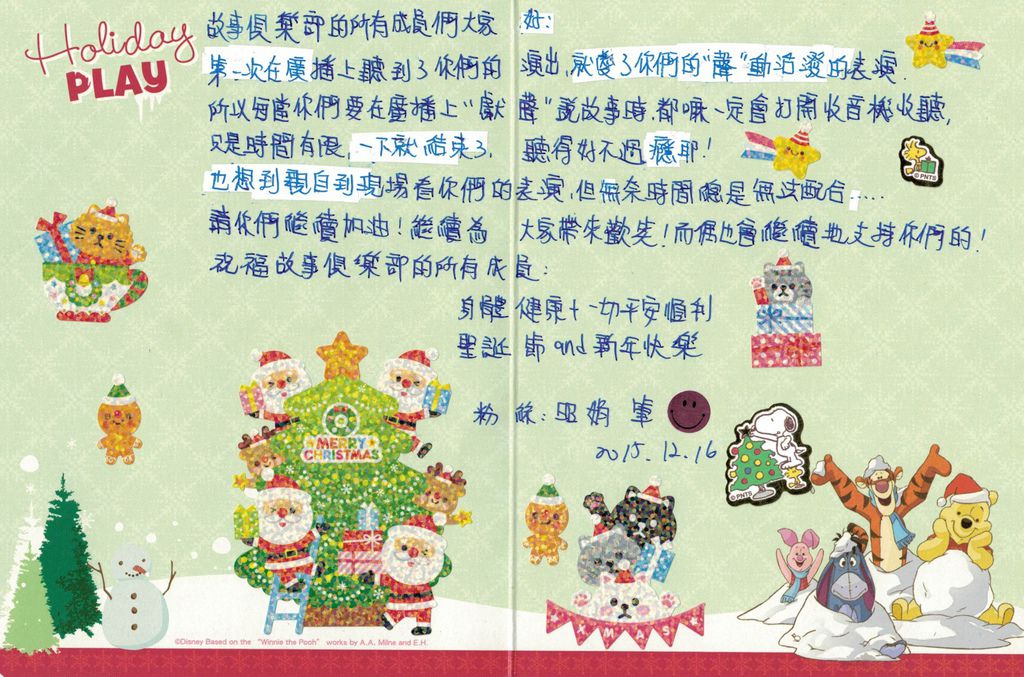 Holiday
PLAY
故事俱樂部的所有成員們大家好:
第一次在廣播上聽到了你們的演出,就愛了你們的"聲"動活潑的表演.
所以每當你們要在廣播上"獻聲"說故事時,都嘛一定會打開收音機收聽,
只是時間有限,一下就結束了,聽得好不過癮耶!
也想到親自到現場看你們的表演,但無奈時間總是無法配合.....
請你們繼續加油!繼續為大家帶來歡笑!而偶也會繼續地支持你們的!
祝福故事俱樂部的所有成員:
身體健康+一切平安順利
聖誕節and新年快樂
粉絲:昭娟 筆
2015.12.16
MERRY
CHRISTMAS
©PNTS
©PNTS
XMAS
©Disney Based on the "Winnie the Pooh" works by A.A. Milne and E.H.